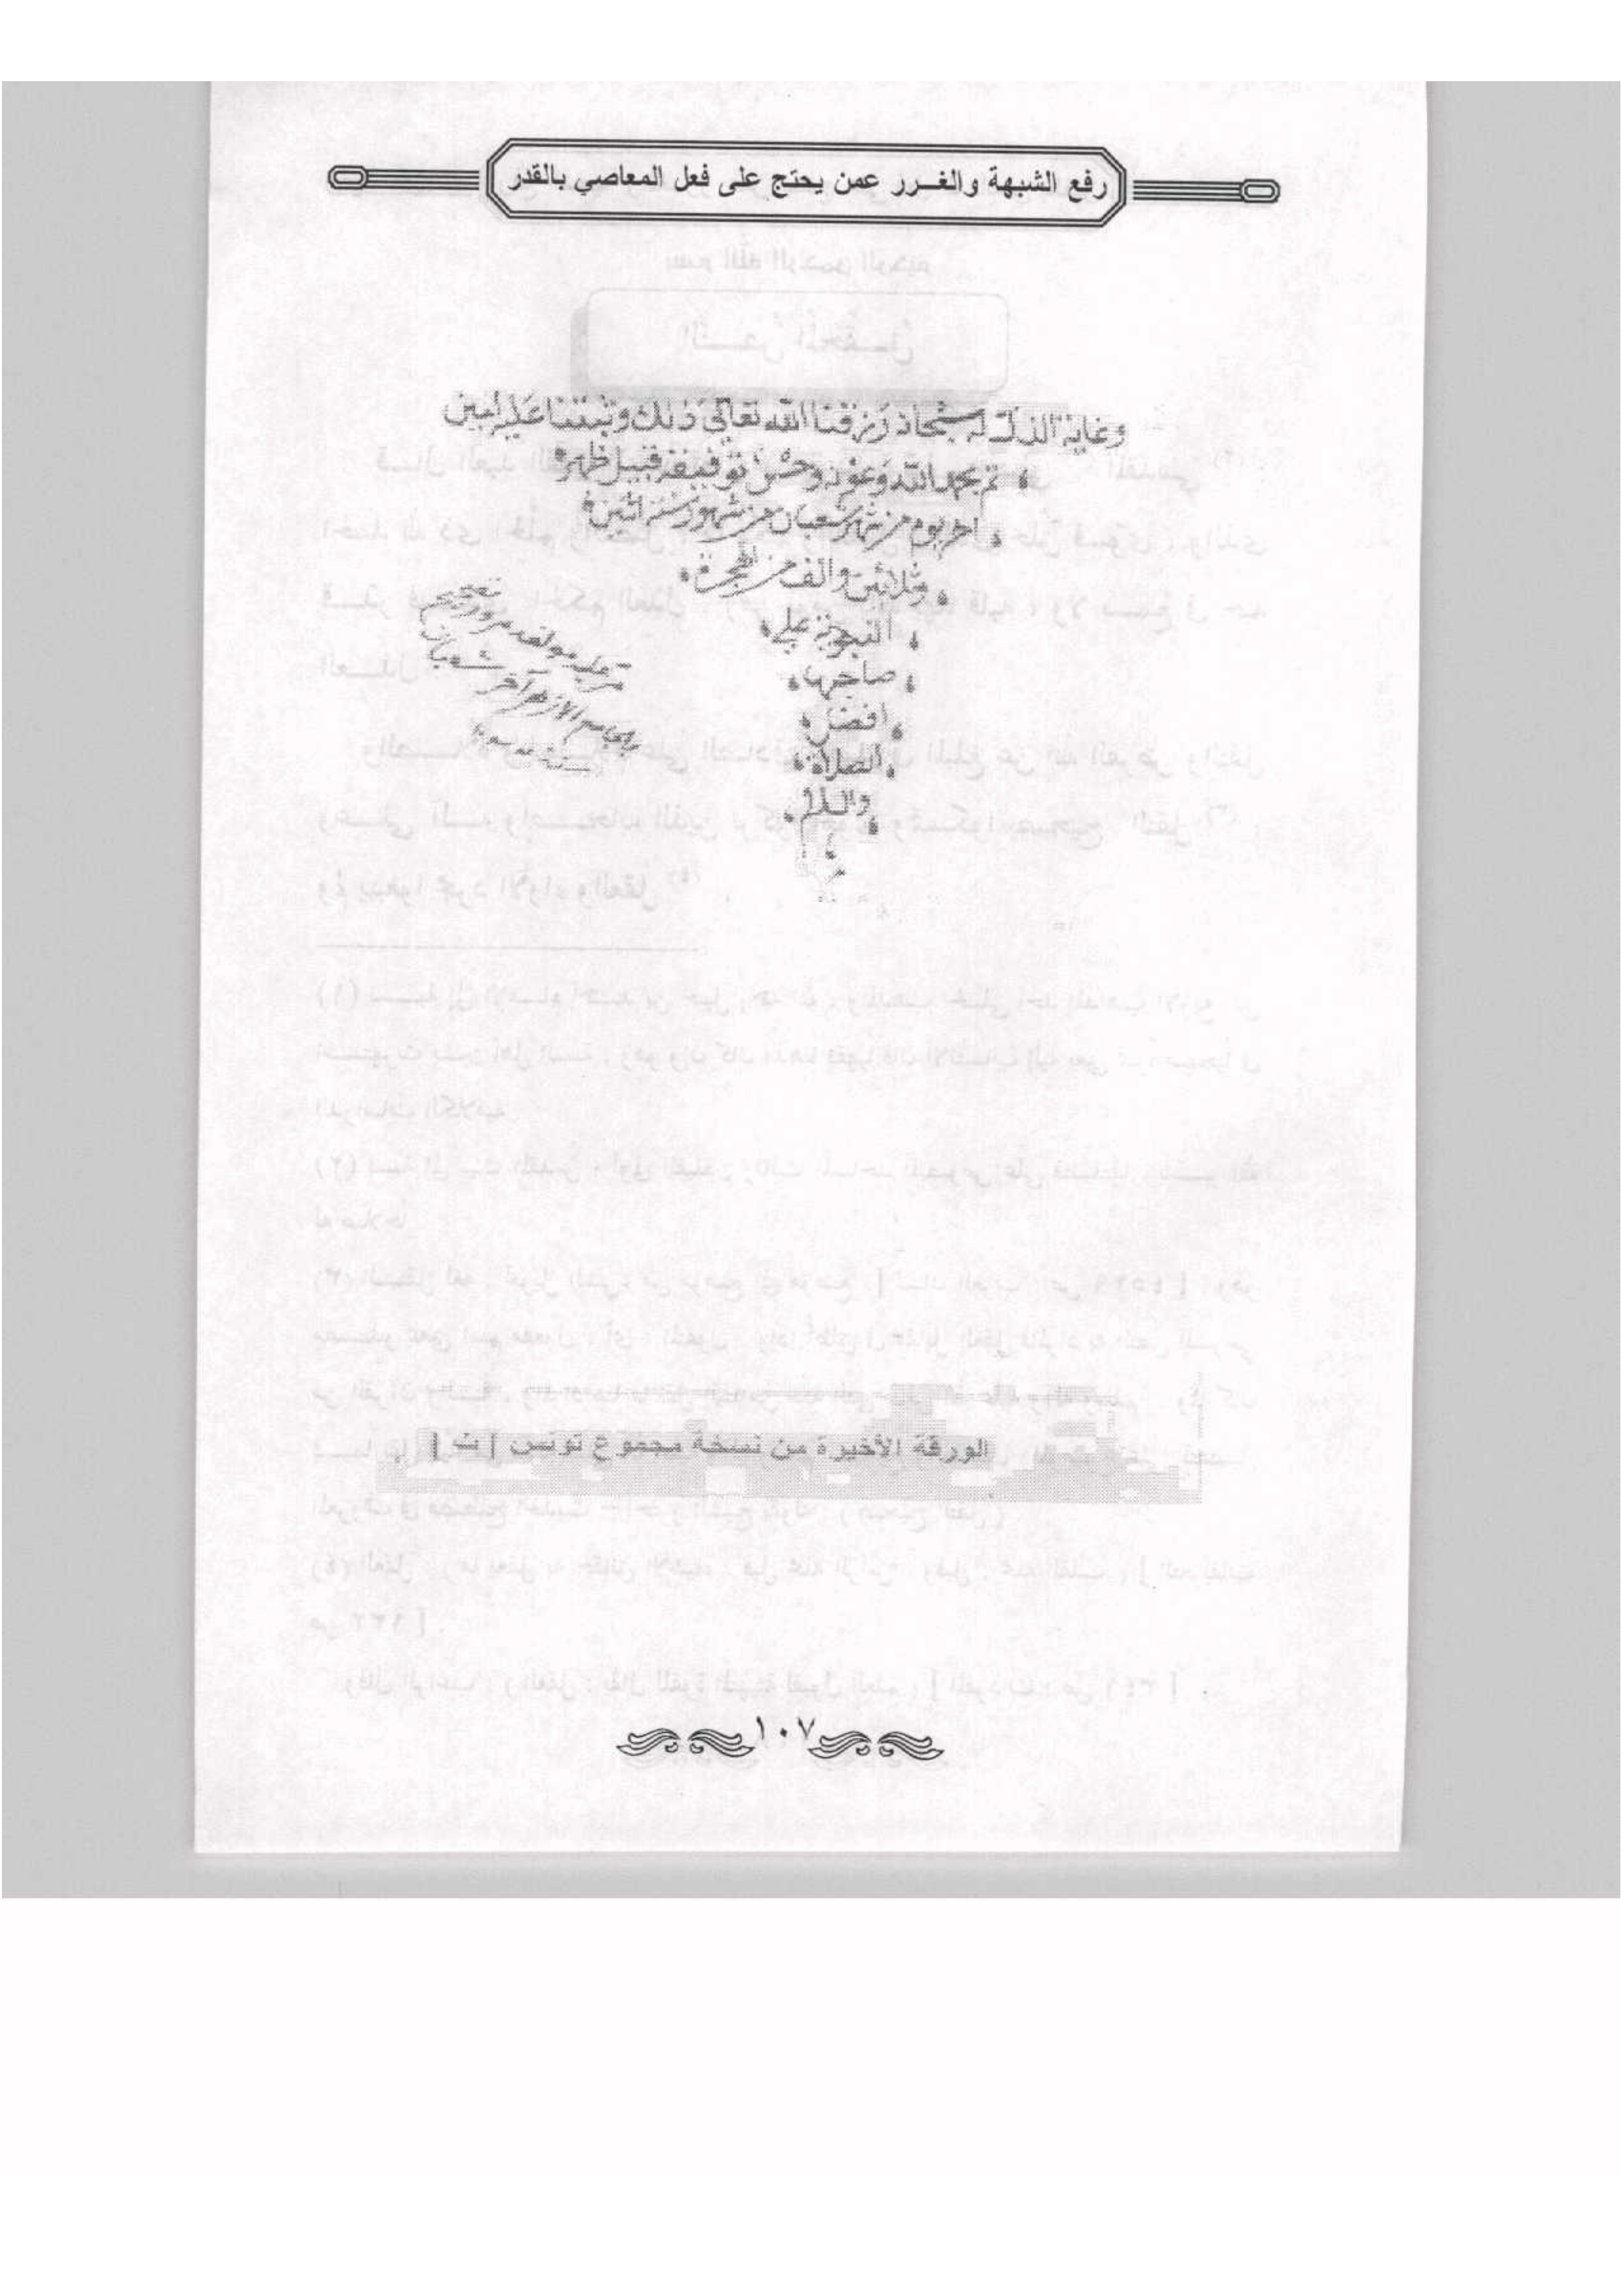 رفع الشبهة والغرر عمن يحتج على فعل المعاصي بالقدر
وغاية الذل له سبحانه رزقنا الله تعالى ذلك وثبتنا عليه امين
تم بحمد الله وعونه وحسن توفيقه قبيل ظهر
اخر يوم من شهر شعبان من شهور سنة اثنين
وثلاثين والف من الهجرة
النبوية على
صاحبها
افضل
الصلاة
والسلام
مؤلفه
بالجامع الازهر آخر شعبان
سنة
الورقة الأخيرة من نسخة مجموع تونس [ ت ]
١٠٧